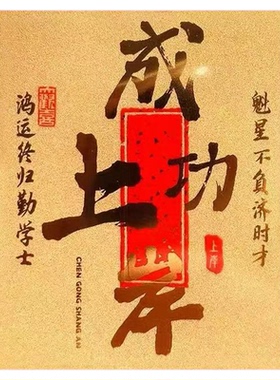 成功
上岸
魁星不负济时才
鸿运终归勤学士
上岸
CHEN GONG SHANG AN